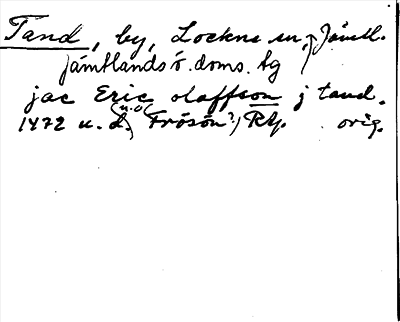 Tand, by, Lockne sn, Jämtl.
Jämtlands ö. doms. tg
jac Eric olaffson j tand.
(u.o.)
1472 u. d. Frösön?) RAp. orig.